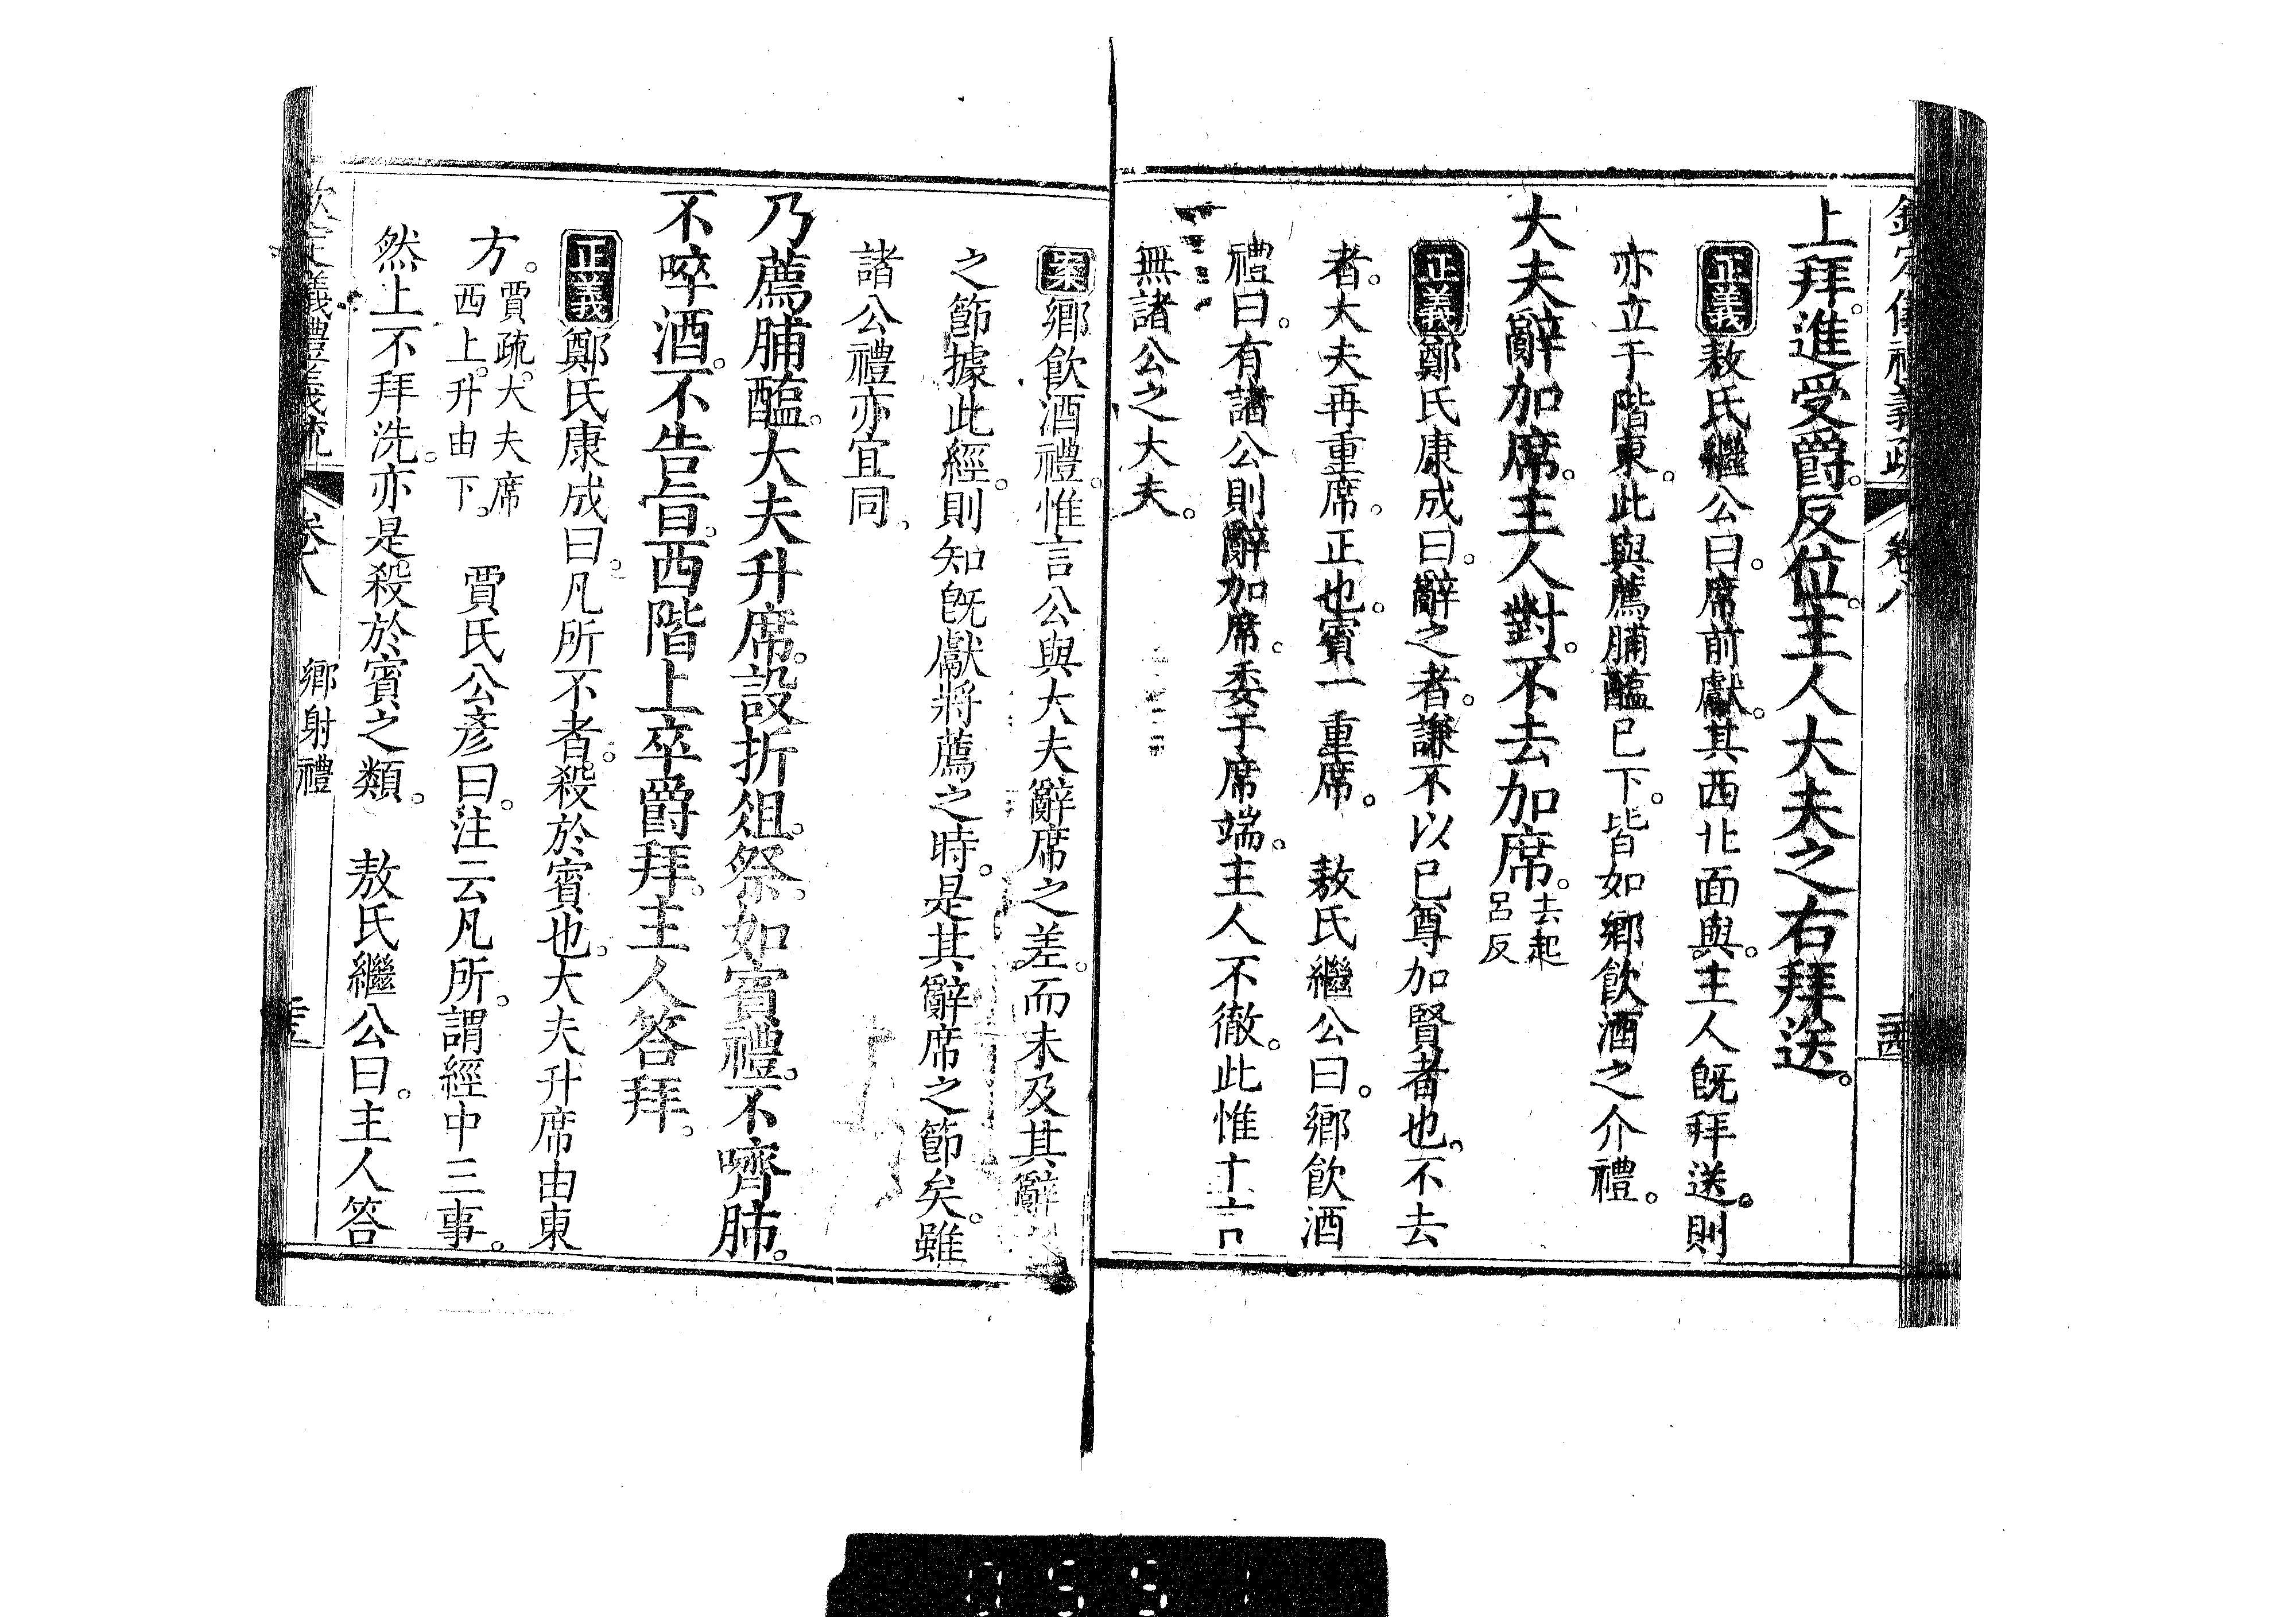 欽定儀禮義疏 卷八
上拜。進受爵。反位。主人大夫之右拜送。
正義敖氏繼公曰。席前獻。其西北面與。主人旣拜送。則
亦立于階東。此與薦脯醢已下。皆如鄉飲酒之介禮。
大夫辭加席。主人對。不去加席。去起呂反
正義鄭氏康成曰。辭之者。謙不以已尊加賢者也。不去
者。大夫再重席。正也。賓一重席。 敖氏繼公曰。鄉飲酒
禮曰。有諸公則辭加席。委于席端。主人不徹。此惟
無諸公之大夫。
案鄉飲酒禮。惟言公與大夫辭席之差。而未及其辭
之節。據此經。則知旣獻將薦之時。是其辭席之節矣。雖
諸公禮亦宜同。
乃薦脯醢。大夫升席。設折俎。祭如賓禮。不嚌肺。
不啐酒。不告旨。西階上卒爵。拜。主人答拜。
正義鄭氏康成曰。凡所不者。殺於賓也。大夫升席由東
方。賈疏。大夫席西上。升由下。 賈氏公彥曰。注云凡所。謂經中三事。
然上不拜洗。亦是。殺於賓之類。 敖氏繼公曰。主人答
欽定儀禮義疏 卷八 鄉射禮